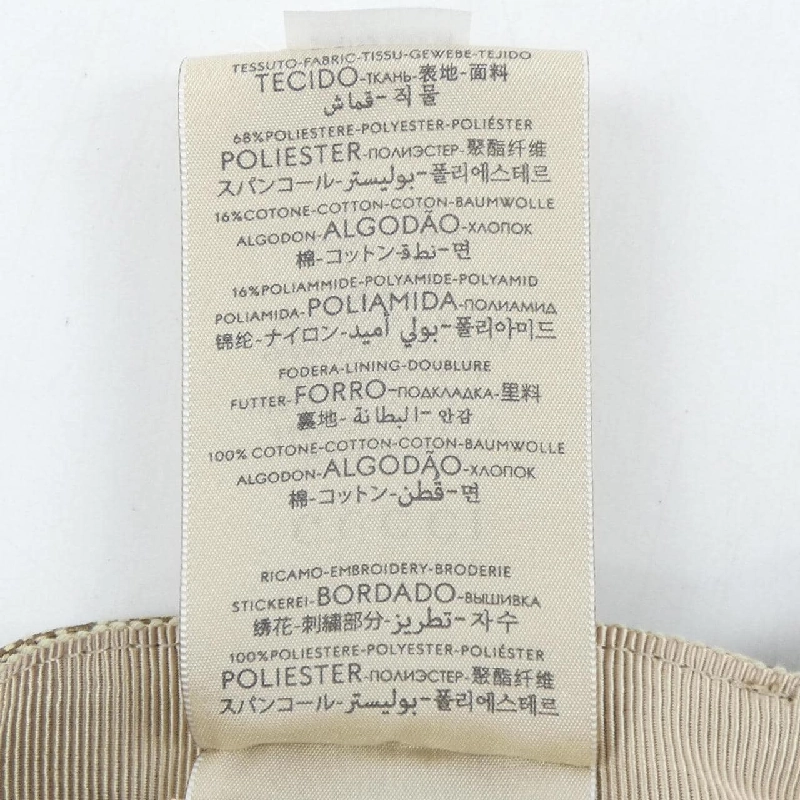 TESSUTO-FABRIC-TISSU-GEWEBE-TEJIDO
TECIDO-ТКАНЬ-表地-面料
قماش-직물
68%POLIESTERE-POLYESTER-POLIÉSTER
POLIESTER-ПОЛИЭСТЕР-聚酯纤维
スパンコール-بوليستر-폴리에스테르
16%COTONE-COTTON-COTON-BAUMWOLLE
ALGODON-ALGODÃO-ХЛОПОК
棉-コットン-نطقة-면
16%POLIAMMIDE-POLYAMIDE-POLYAMID
POLIAMIDA-POLIAMIDA-ПОЛИАМИД
锦纶-ナイロン-بولي أميد-폴리아미드
FODERA-LINING-DOUBLURE
FUTTER-FORRO-ПОДКЛАДКА-里料
裏地-البطانة-안감
100% COTONE-COTTON-COTON-BAUMWOLLE
ALGODON-ALGODÃO-ХЛОПОК
棉-コットン-قُطن-면
RICAMO-EMBROIDERY-BRODERIE
STICKEREI-BORDADO-ВЫШИВКА
绣花-刺繍部分-تطريز-자수
100%POLIESTERE-POLYESTER-POLIÉSTER
POLIESTER-ПОЛИЭСТЕР-聚酯纤维
スパンコール-بوليستر-폴리에스테르